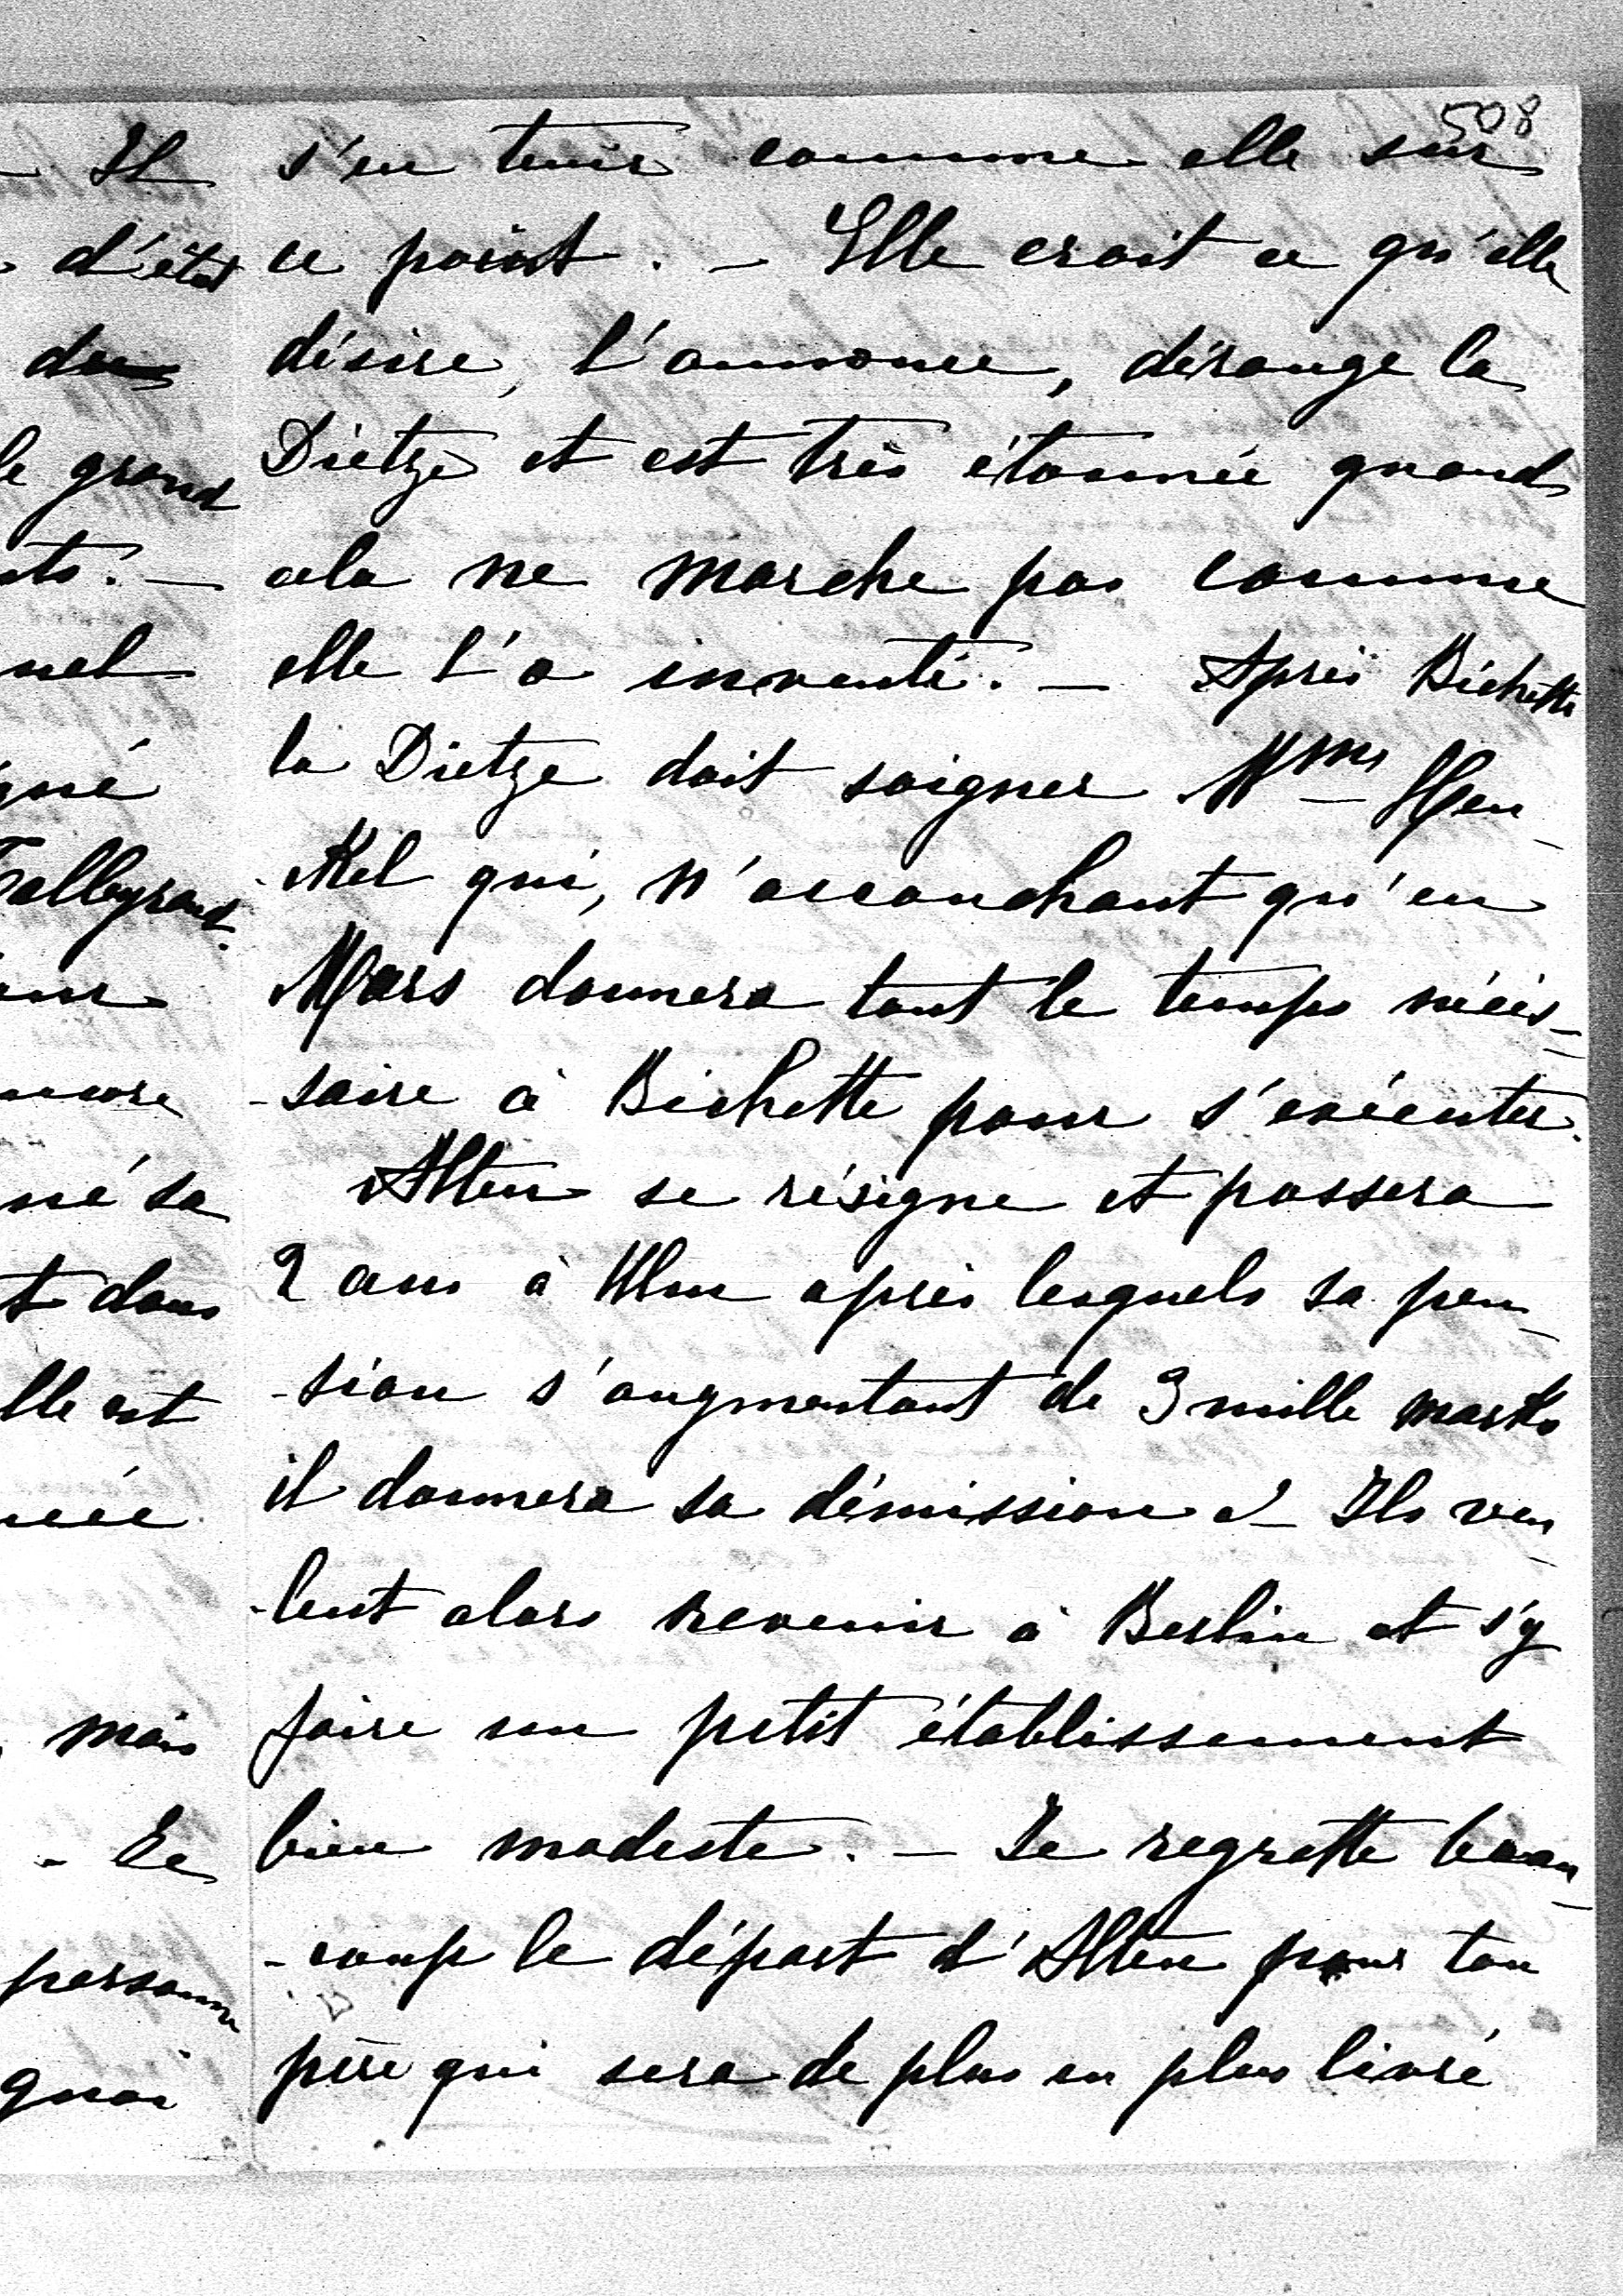 508
s'en tenir comme elle sur
ce point. - Elle croit ce qu'elle
désire, l'annonce, dérange la
Dietze et est très étonnée quand
cela ne marche pas comme
elle l'a inventé. - Après Bichette
la Dietze doit soigner Mme Hen
-kel qui, n'accouchant qu'en
Mars donnera tout le temps néces-
-saire à Bichette pour s'exécuter.
Alten se résigne et passera
2 ans à Ulm après lesquels sa pen-
-sion s'augmentant de 3 mille marks
il donnera sa démission. - Ils veu-
-lent alors revenir à Berlin et s'y
faire un petit établissement
bien modeste. - Je regrette beau-
-coup le départ d'Alten pour ton
père qui sera de plus en plus livré
- Il
d'état
du
le grand
nel
gné
Talleyrand.
né sa
t dans
lle est
mais
- Le
personne
quoi